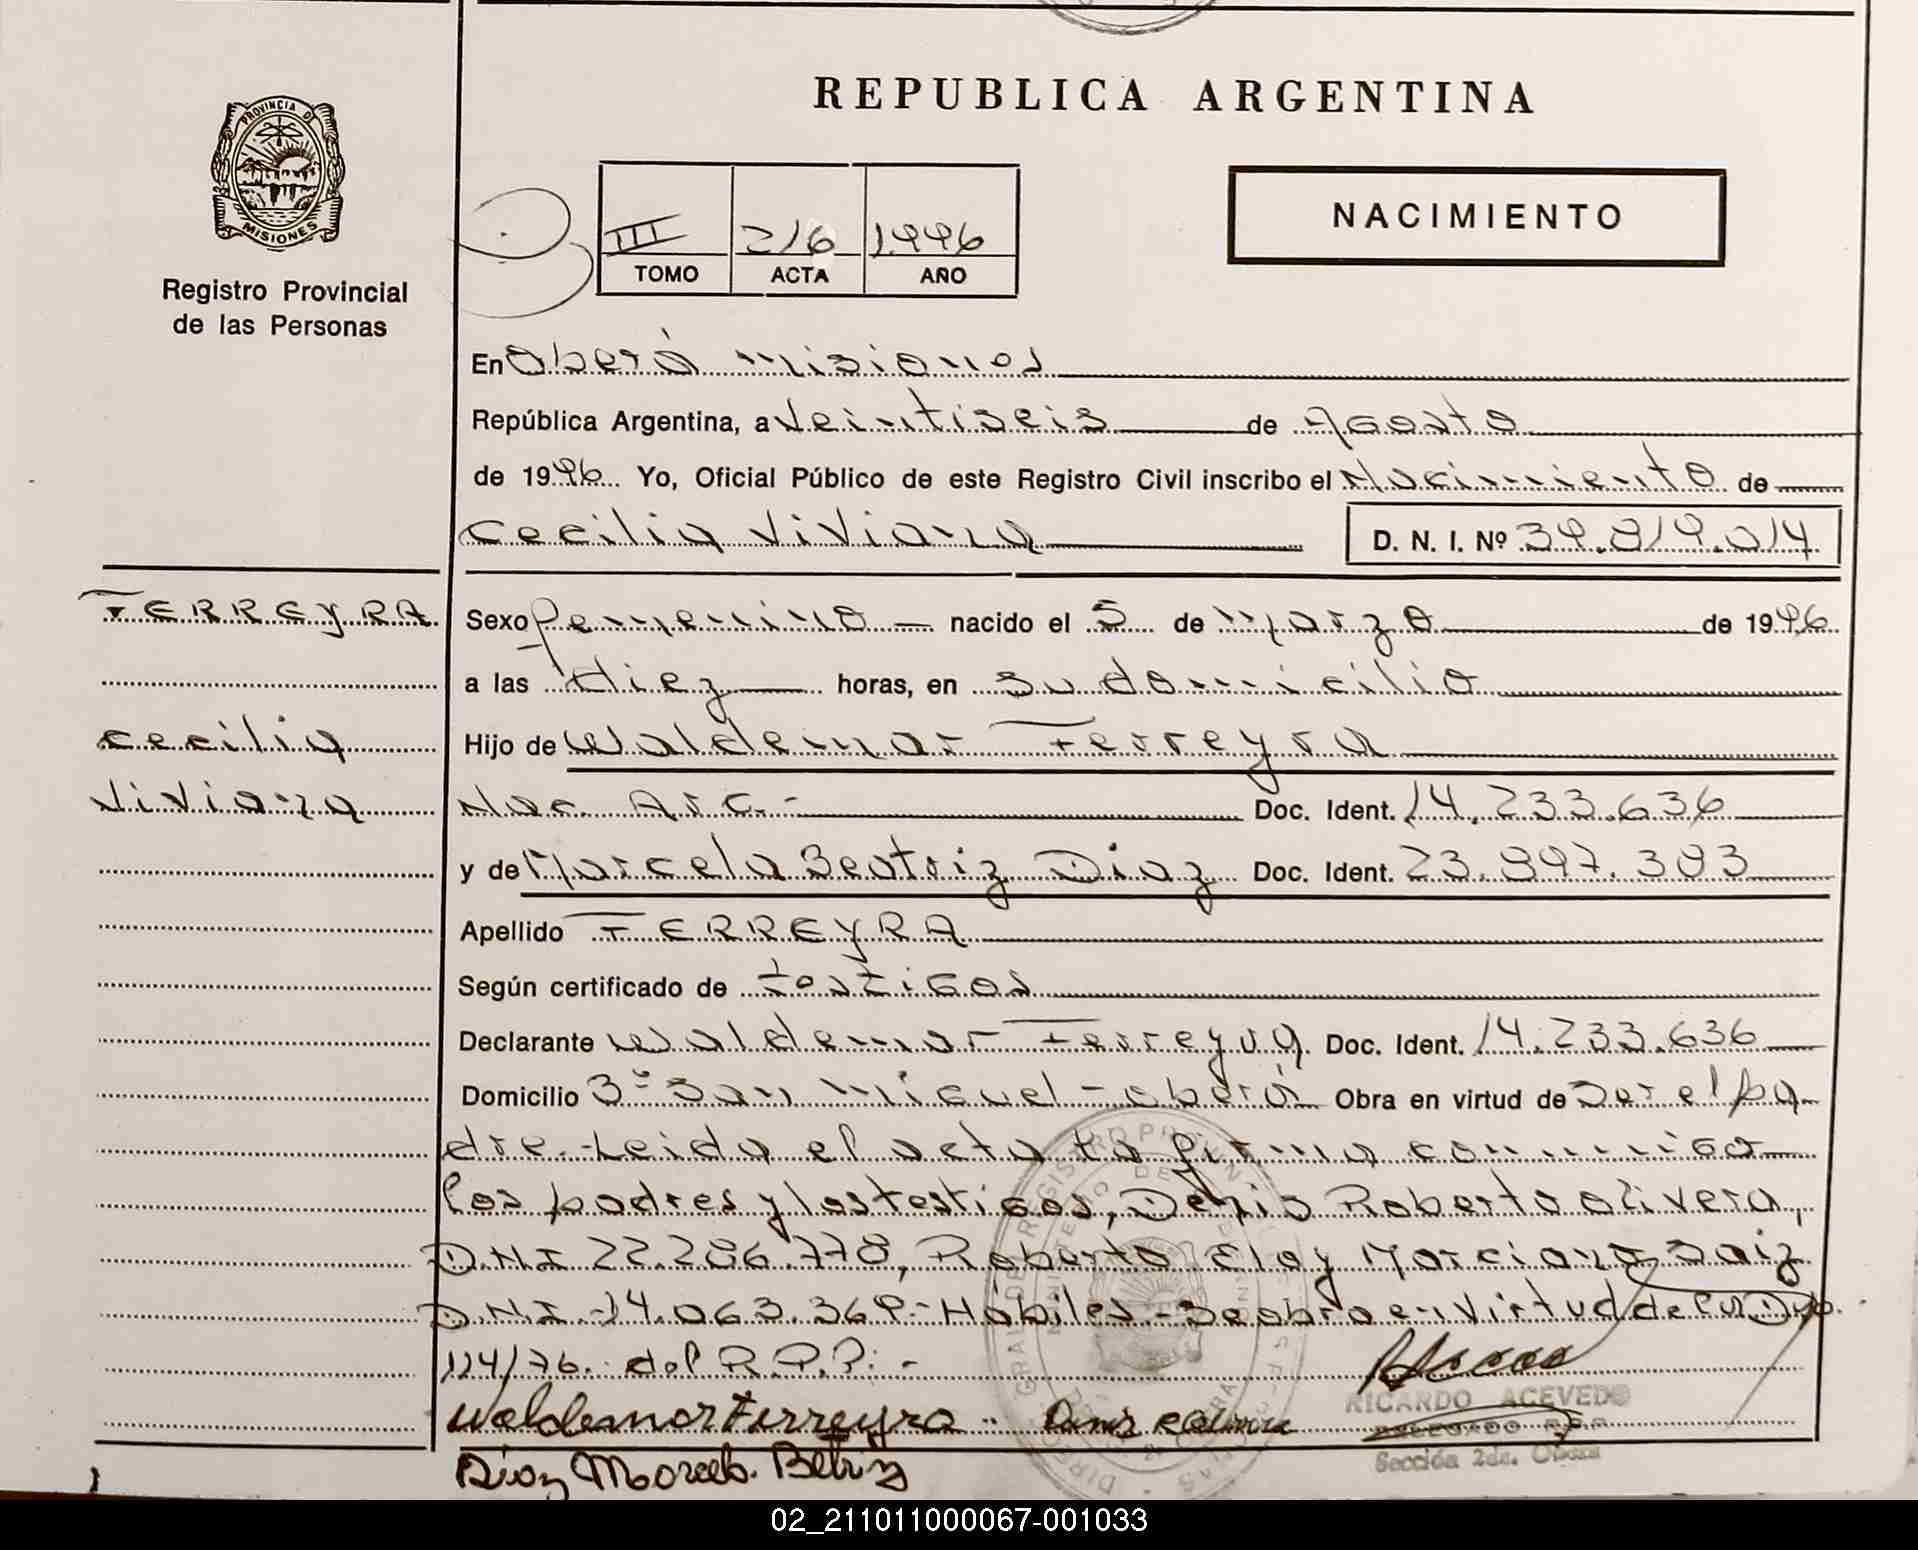 REPUBLICA ARGENTINA
PROVINCIA DE
MISIONES
Registro Provincial
de las Personas
III 216 1996
TOMO ACTA AÑO
NACIMIENTO
En Oberá Misiones
República Argentina, a Veintiseis de Agosto
de 1996 Yo, Oficial Público de este Registro Civil inscribo el Nacimiento de
Cecilia Viviana D. N. I. Nº 39.819.014
FERREYRA
Cecilia
Viviana
Sexo Femenino nacido el 5 de Marzo de 1996
a las diez horas, en su domicilio
Hijo de Waldemar Ferreyra
Nac. Arg.- Doc. Ident. 14.233.636
y de Marcela Beatriz Diaz Doc. Ident. 23.897.383
Apellido FERREYRA
Según certificado de testigos
Declarante Waldemar Ferreyra Doc. Ident. 14.233.636
Domicilio Bº San Miguel - Oberá Obra en virtud de Ser el pa
dre.- Leida el acta la firma conmigo
los padres y los testigos, Roberto Olivera,
D.N.I 22.286.778, Roberto Eloy Marciano Saiz
D.N.I.-14.063.369.- Hábiles - Se obra en virtud de la Dyp.
114/76. del R.P.P.-
Waldemar Ferreyra
RICARDO ACEVEDO
DELEGADO R.P.P.
Sección 2da. Oberá
Diaz Marcela Beatriz
02_211011000067-001033